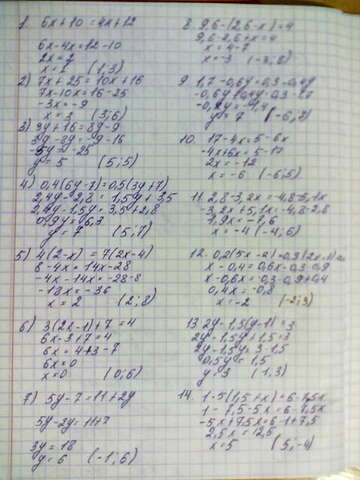 1. 6x+10=4x+12
6x-4x=12-10
2x=2
x=1 (1;3)
2) 7x+25=10x+16
7x-10x=16-25
-3x=-9
x=3 (3;6)
3) 3y+16=8y-9
3y-8y=-9-16
-5y=-25
y=5 (5;5)
4) 0,4(6y-7)=0,5(3y+7)
2,4y-2,8=1,5y+3,5
2,4y-1,5y=3,5+2,8
0,9y=6,3
y=7 (5;7)
5) 4(2-x)=7(2x-4)
8-4x=14x-28
-4x-14x=-28-8
-18x=-36
x=2 (2;8)
6) 3(2x-1)+7=4
6x-3+7=4
6x=4+3-7
6x=0
x=0 (0;6)
7) 5y-7=11+2y
5y-2y=11+7
3y=18
y=6 (-1;6)
8. 9,6-(2,6-x)=4
9,6-2,6+x=4
x=4-7
x=-3 (-3;8)
9. 1,7-0,6y=0,3-0,4y
-0,6y+0,4y=0,3-1,7
-0,2y=-1,4
y=7 (-6;2)
10. 17-4x=5-6x
-4x+6x=5-17
2x=-12
x=-6 (-6;5)
11. 2,8-3,2x=-4,8-5,1x
-3,2x+5,1x=-4,8-2,8
1,9x=-7,6
x=-4 (-4;6)
12. 0,2(5x-2)=0,3(2x-1)-0,9
x-0,4=0,6x-0,3-0,9
x-0,6x=-0,3-0,9+0,4
0,4x=-0,8
x=-2 (-2;3)
13. 2y-1,5(y-1)=3
2y-1,5y+1,5=3
2y-1,5y=3-1,5
0,5y=1,5
y=3 (1;3)
14. 1-5(1,5+x)=6-7,5x
1-7,5-5x=6-7,5x
-5x+7,5x=6-1+7,5
2,5x=12,5
x=5 (5;-4)